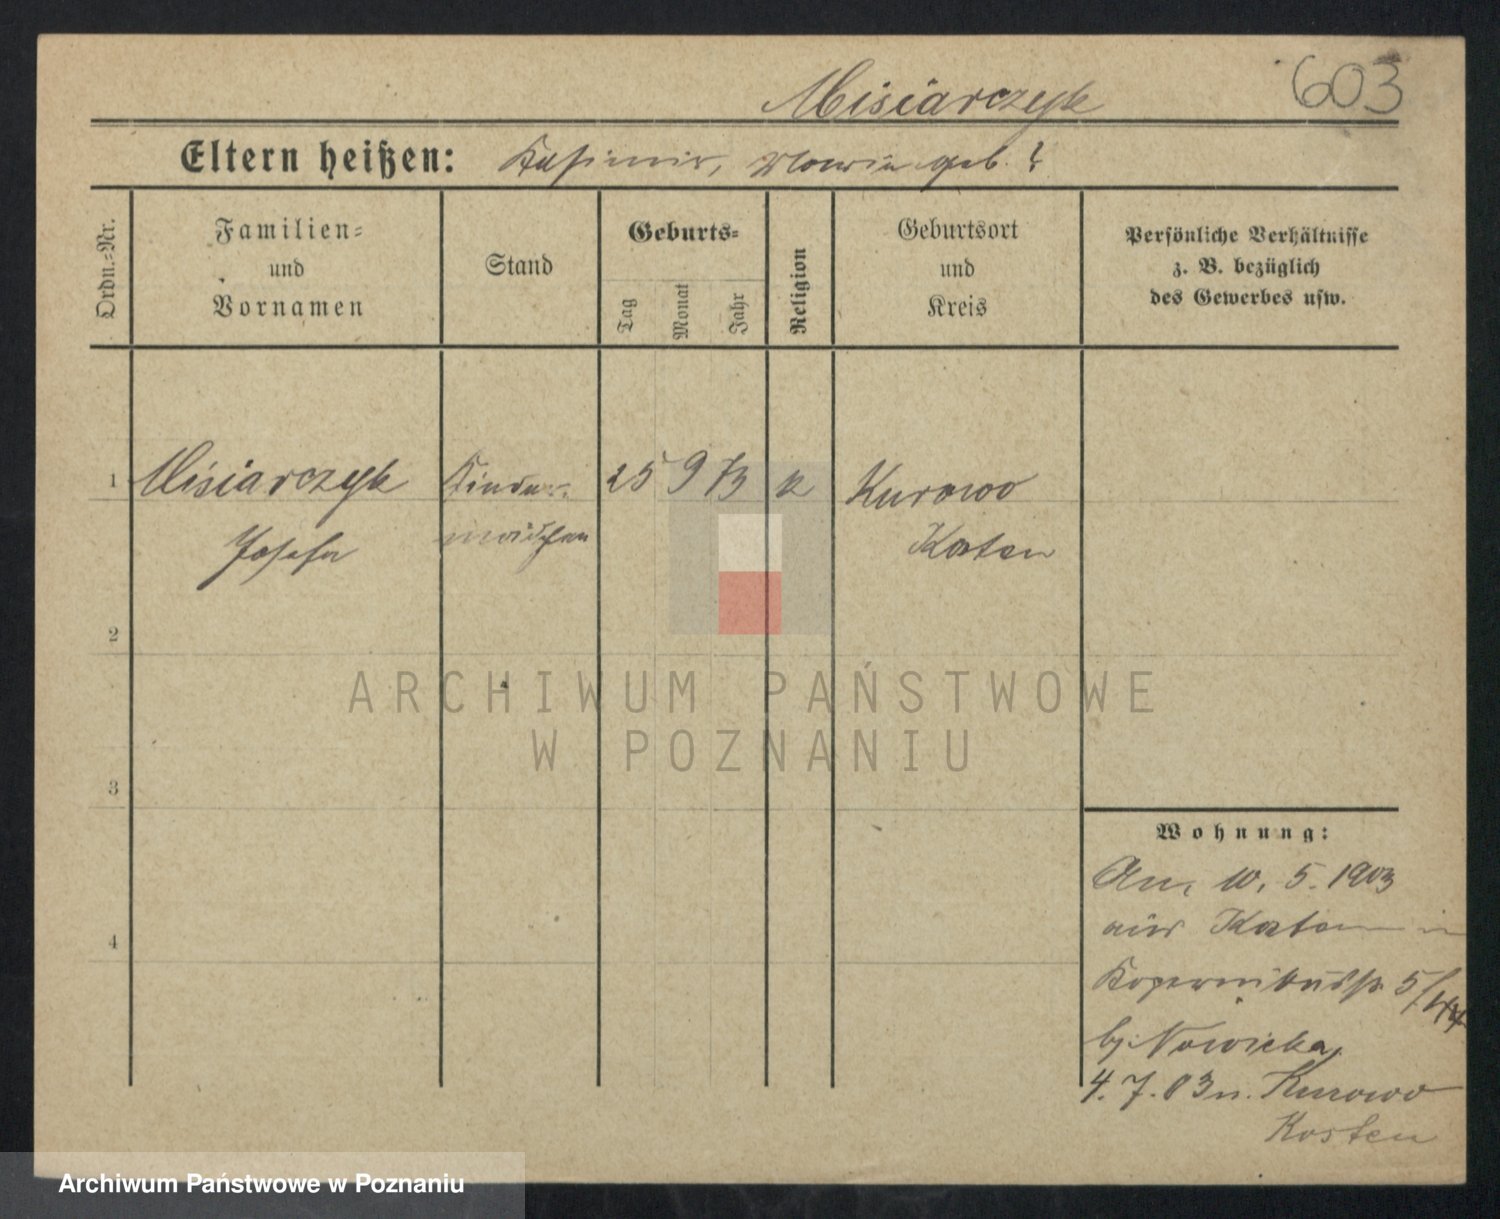 Misiarczyk 603
Eltern heißen: Kasimir, Maria geb. ?
Ordn.=Nr.
Familien=
und
Vornamen
Stand
Geburts=
Tag
Monat
Jahr
Religion
Geburtsort
und
Kreis
Persönliche Verhältnisse
z. B. bezüglich
des Gewerbes usw.
1 Misiarczyk Kinder- 25 9 73 k Kurowo
Josefa mädchen Kosten
2
3
4
Wohnung:
An, 10. 5. 1903
aus Kosten in
Kopernikusstr 5/
bj. Nowicka
4. 7. 03 n. Kurowo
Kosten
ARCHIWUM PAŃSTWOWE
W POZNANIU
Archiwum Państwowe w Poznaniu